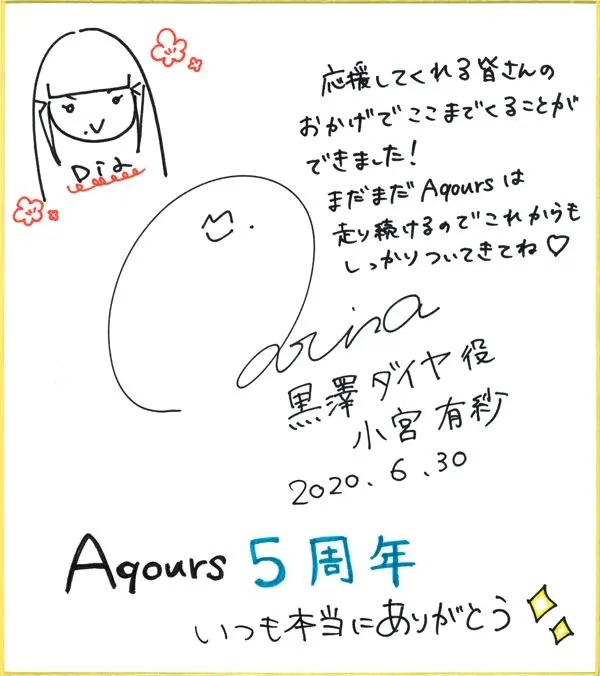 Dia
応援してくれる皆さんの
おかげでここまでくることが
できました!
まだまだAqoursは
走り続けるのでこれからも
しっかりついてきてね♡
Arisa
黒澤ダイヤ役
小宮有紗
2020.6.30
Aqours 5周年
いつも本当にありがとう